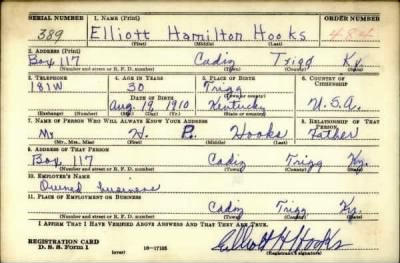 SERIAL NUMBER 1. NAME (Print) ORDER NUMBER
389 Elliott Hamilton Hooks 484
(First) (Middle) (Last)
2. ADDRESS (Print)
Box 117 Cadiz Trigg Ky.
(Number and street or R. F. D. number) (Town) (County) (State)
3. TELEPHONE 4. AGE IN YEARS 5. PLACE OF BIRTH 6. COUNTRY OF CITIZENSHIP
181W 30 Trigg
DATE OF BIRTH (Town or county)
Aug. 19, 1910 Kentucky U.S.A.
(Exchange) (Number) (Mo.) (Day) (Yr.) (State or country)
7. NAME OF PERSON WHO WILL ALWAYS KNOW YOUR ADDRESS 8. RELATIONSHIP OF THAT PERSON
Mr. Hooks Father
(Mr., Mrs., Miss) (First) (Middle) (Last)
9. ADDRESS OF THAT PERSON
Box 117 Cadiz Trigg Ky.
(Number and street or R. F. D. number) (Town) (County) (State)
10. EMPLOYER'S NAME
Owned business
11. PLACE OF EMPLOYMENT OR BUSINESS
Cadiz Trigg Ky.
(Number and street or R. F. D. number) (Town) (County) (State)
I AFFIRM THAT I HAVE VERIFIED ABOVE ANSWERS AND THAT THEY ARE TRUE.
REGISTRATION CARD
D. S. S. Form 1 (over) 16-17105 Elliott H Hooks
(Registrant's signature)